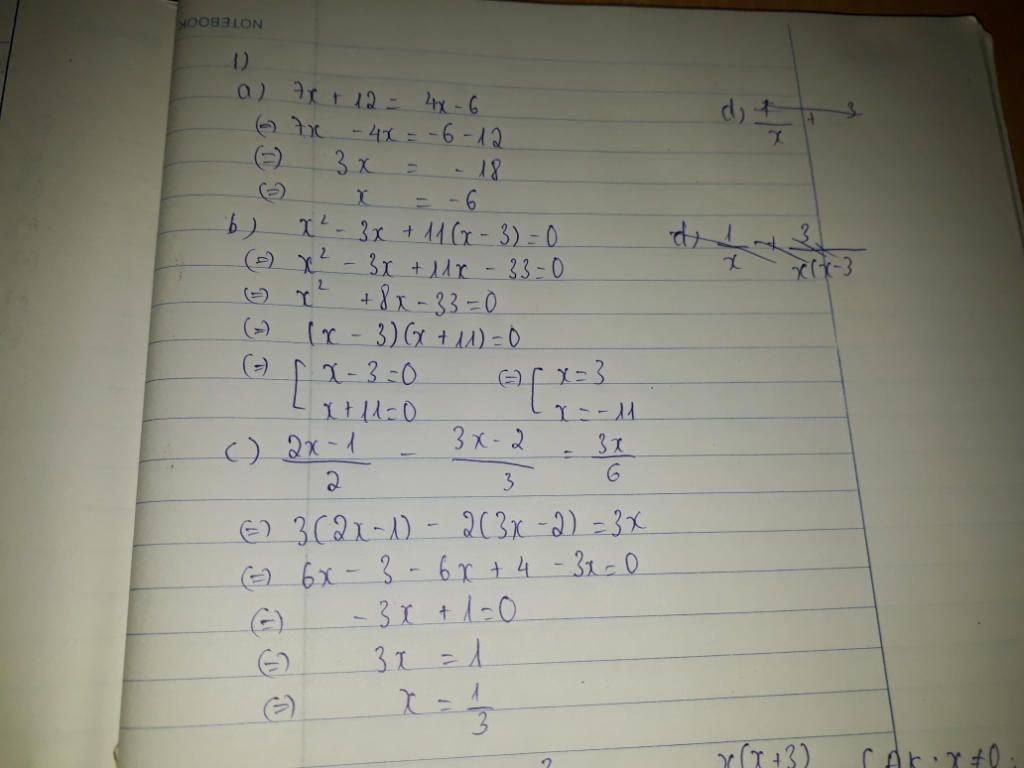 NOTEBOOK
1)
a) 7x + 12 = 4x - 6
(=) 7x - 4x = -6 - 12
(=) 3x = - 18
(=) x = -6
b) x² - 3x + 11(x - 3) = 0
(=) x² - 3x + 11x - 33 = 0
(=) x² + 8x - 33 = 0
(=) (x - 3)(x + 11) = 0
(=) [ x - 3 = 0 (=) [ x = 3
x + 11 = 0 x = -11
c) (2x - 1)/2 - (3x - 2)/3 = 3x/6
(=) 3(2x - 1) - 2(3x - 2) = 3x
(=) 6x - 3 - 6x + 4 - 3x = 0
(=) - 3x + 1 = 0
(=) 3x = 1
(=) x = 1/3
d) 1/x + 3
d) 1/x + 3/x(x-3
x(x+3)